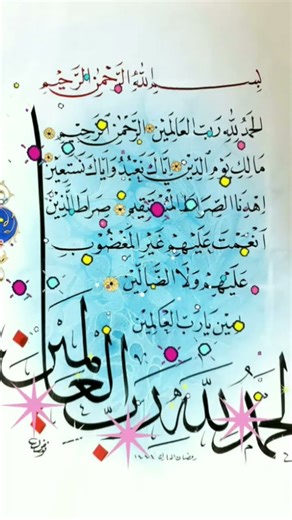 بِسْمِ اللهِ الرَّحْمٰنِ الرَّحِيْمِ
الْحَمْدُ لِلهِ رَبِّ الْعَالَمِيْنَ الرَّحْمٰنِ الرَّحِيْمِ
مَالِكِ يَوْمِ الدِّيْنِ اِيَّاكَ نَعْبُدُ وَاِيَّاكَ نَسْتَعِيْنُ
اِهْدِنَا الصِّرَاطَ الْمُسْتَقِيْمَ صِرَاطَ الَّذِيْنَ
اَنْعَمْتَ عَلَيْهِمْ غَيْرِ الْمَغْضُوْبِ
عَلَيْهِمْ وَلَا الضَّالِّيْنَ
اٰمِيْن يَا رَبَّ الْعَالَمِيْنَ
الْحَمْدُ لِلهِ رَبِّ الْعَالَمِيْنَ
رمضان